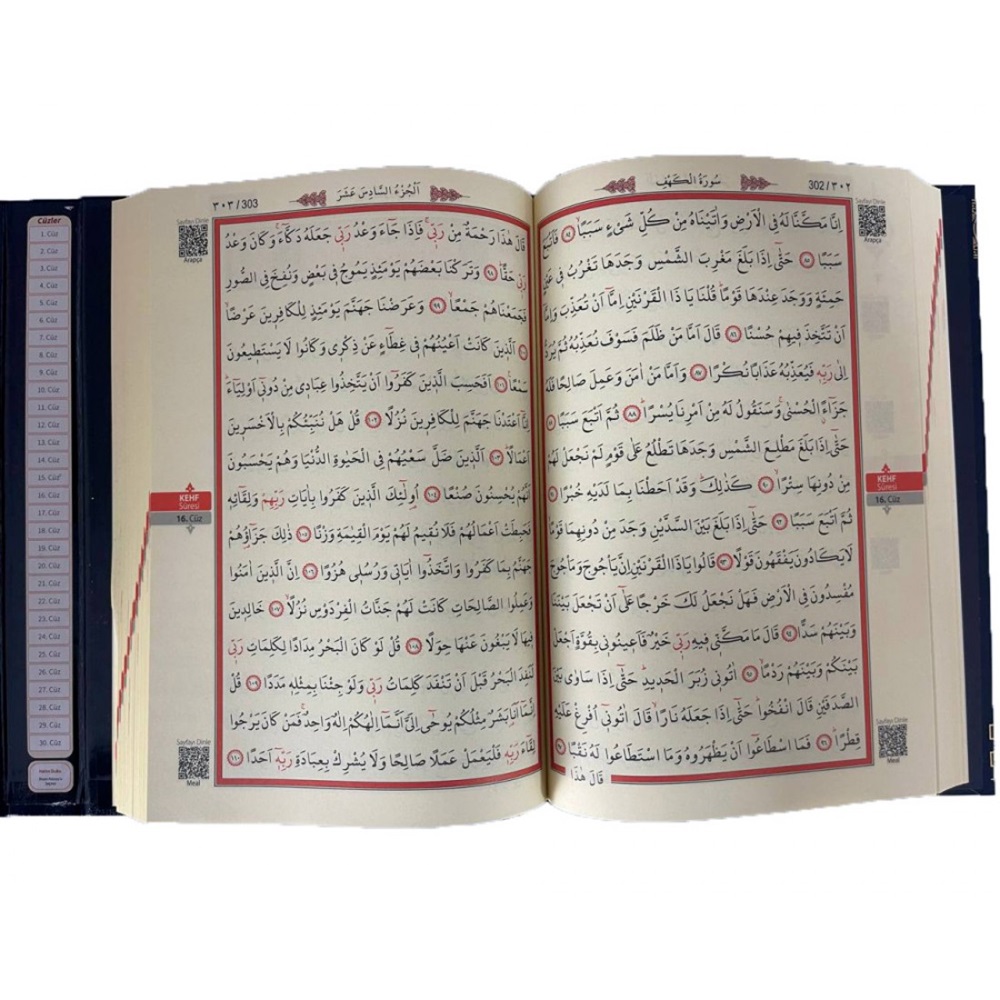 سُورَةُ الْكَهْفِ
302/٣٠٢
اِنَّا مَكَّنَّا لَهُ فِي الْاَرْضِ وَاٰتَيْنَاهُ مِنْ كُلِّ شَيْءٍ سَبَبًاۙ ﴿٨٤﴾ فَاَتْبَعَ
سَبَبًا ﴿٨٥﴾ حَتّٰٓى اِذَا بَلَغَ مَغْرِبَ الشَّمْسِ وَجَدَهَا تَغْرُبُ ف۪ي عَيْنٍ
حَمِئَةٍ وَوَجَدَ عِنْدَهَا قَوْمًاۜ قُلْنَا يَا ذَا الْقَرْنَيْنِ اِمَّٓا اَنْ تُعَذِّبَ وَاِمَّٓا
اَنْ تَتَّخِذَ ف۪يهِمْ حُسْنًا ﴿٨٦﴾ قَالَ اَمَّا مَنْ ظَلَمَ فَسَوْفَ نُعَذِّبُهُ ثُمَّ يُرَدُّ
اِلٰى رَبِّه۪ فَيُعَذِّبُهُ عَذَابًا نُكْرًا ﴿٨٧﴾ وَاَمَّا مَنْ اٰمَنَ وَعَمِلَ صَالِحًا فَلَهُ
جَزَٓاءًۨ الْحُسْنٰىۚ وَسَنَقُولُ لَهُ مِنْ اَمْرِنَا يُسْرًاۜ ﴿٨٨﴾ ثُمَّ اَتْبَعَ سَبَبًا ﴿٨٩﴾
حَتّٰٓى اِذَا بَلَغَ مَطْلِعَ الشَّمْسِ وَجَدَهَا تَطْلُعُ عَلٰى قَوْمٍ لَمْ نَجْعَلْ لَهُمْ
مِنْ دُونِهَا سِتْرًاۙ ﴿٩٠﴾ كَذٰلِكَۜ وَقَدْ اَحَطْنَا بِمَا لَدَيْهِ خُبْرًا ﴿٩١﴾
ثُمَّ اَتْبَعَ سَبَبًا ﴿٩٢﴾ حَتّٰٓى اِذَا بَلَغَ بَيْنَ السَّدَّيْنِ وَجَدَ مِنْ دُونِهِمَا قَوْمًاۙ
لَا يَكَادُونَ يَفْقَهُونَ قَوْلًا ﴿٩٣﴾ قَالُوا يَا ذَا الْقَرْنَيْنِ اِنَّ يَأْجُوجَ وَمَأْجُوجَ
مُفْسِدُونَ فِي الْاَرْضِ فَهَلْ نَجْعَلُ لَكَ خَرْجًا عَلٰٓى اَنْ تَجْعَلَ بَيْنَنَا
وَبَيْنَهُمْ سَدًّا ﴿٩٤﴾ قَالَ مَا مَكَّنّ۪ي ف۪يهِ رَبّ۪ي خَيْرٌ فَاَع۪ينُون۪ي بِقُوَّةٍ اَجْعَلْ
بَيْنَكُمْ وَبَيْنَهُمْ رَدْمًاۙ ﴿٩٥﴾ اٰتُون۪ي زُبَرَ الْحَد۪يدِۜ حَتّٰٓى اِذَا سَاوٰى بَيْنَ
الصَّدَفَيْنِ قَالَ انْفُخُواۜ حَتّٰٓى اِذَا جَعَلَهُ نَارًاۙ قَالَ اٰتُون۪ٓي اُفْرِغْ عَلَيْهِ
قِطْرًاۜ ﴿٩٦﴾ فَمَا اسْطَاعُٓوا اَنْ يَظْهَرُوهُ وَمَا اسْتَطَاعُوا لَهُ نَقْبًا ﴿٩٧﴾
قَالَ هٰذَا
Sayfayı Dinle
Arapça
KEHF
Sûresi
16. Cüz
Sayfayı Dinle
Meal
اَلْجُزْءُ السَّادِسَ عَشَرَ
٣٠٣/303
قَالَ هٰذَا رَحْمَةٌ مِنْ رَبّ۪يۚ فَاِذَا جَٓاءَ وَعْدُ رَبّ۪ي جَعَلَهُ دَكَّٓاءَۚ وَكَانَ وَعْدُ
رَبّ۪ي حَقًّاۜ ﴿٩٨﴾ وَتَرَكْنَا بَعْضَهُمْ يَوْمَئِذٍ يَمُوجُ ف۪ي بَعْضٍ وَنُفِخَ فِي الصُّورِ
فَجَمَعْنَاهُمْ جَمْعًاۙ ﴿٩٩﴾ وَعَرَضْنَا جَهَنَّمَ يَوْمَئِذٍ لِلْكَافِر۪ينَ عَرْضًاۙ
﴿١٠٠﴾ اَلَّذ۪ينَ كَانَتْ اَعْيُنُهُمْ ف۪ي غِطَٓاءٍ عَنْ ذِكْر۪ي وَكَانُوا لَا يَسْتَط۪يعُونَ
سَمْعًا۟ ﴿١٠١﴾ اَفَحَسِبَ الَّذ۪ينَ كَفَرُٓوا اَنْ يَتَّخِذُوا عِبَاد۪ي مِنْ دُون۪ٓي اَوْلِيَٓاءَۜ
اِنَّٓا اَعْتَدْنَا جَهَنَّمَ لِلْكَافِر۪ينَ نُزُلًا ﴿١٠٢﴾ قُلْ هَلْ نُنَبِّئُكُمْ بِالْاَخْسَر۪ينَ
اَعْمَالًاۜ ﴿١٠٣﴾ اَلَّذ۪ينَ ضَلَّ سَعْيُهُمْ فِي الْحَيٰوةِ الدُّنْيَا وَهُمْ يَحْسَبُونَ
اَنَّهُمْ يُحْسِنُونَ صُنْعًا ﴿١٠٤﴾ اُو۬لٰٓئِكَ الَّذ۪ينَ كَفَرُوا بِاٰيَاتِ رَبِّهِمْ وَلِقَٓائِه۪
فَحَبِطَتْ اَعْمَالُهُمْ فَلَا نُق۪يمُ لَهُمْ يَوْمَ الْقِيٰمَةِ وَزْنًا ﴿١٠٥﴾ ذٰلِكَ جَزَٓاؤُ۬هُمْ
جَهَنَّمُ بِمَا كَفَرُوا وَاتَّخَذُٓوا اٰيَات۪ي وَرُسُل۪ي هُزُوًا ﴿١٠٦﴾ اِنَّ الَّذ۪ينَ اٰمَنُوا
وَعَمِلُوا الصَّالِحَاتِ كَانَتْ لَهُمْ جَنَّاتُ الْفِرْدَوْسِ نُزُلًاۙ ﴿١٠٧﴾ خَالِد۪ينَ
ف۪يهَا لَا يَبْغُونَ عَنْهَا حِوَلًا ﴿١٠٨﴾ قُلْ لَوْ كَانَ الْبَحْرُ مِدَادًا لِكَلِمَاتِ رَبّ۪ي
لَنَفِدَ الْبَحْرُ قَبْلَ اَنْ تَنْفَدَ كَلِمَاتُ رَبّ۪ي وَلَوْ جِئْنَا بِمِثْلِه۪ مَدَدًا ﴿١٠٩﴾ قُلْ
اِنَّمَٓا اَنَا۬ بَشَرٌ مِثْلُكُمْ يُوحٰٓى اِلَيَّ اَنَّمَٓا اِلٰهُكُمْ اِلٰهٌ وَاحِدٌۚ فَمَنْ كَانَ يَرْجُوا
لِقَٓاءَ رَبِّه۪ فَلْيَعْمَلْ عَمَلًا صَالِحًا وَلَا يُشْرِكْ بِعِبَادَةِ رَبِّه۪ٓ اَحَدًا ﴿١١٠﴾
Sayfayı Dinle
Arapça
KEHF
Sûresi
16. Cüz
Sayfayı Dinle
Meal
Cüzler
1. Cüz
2. Cüz
3. Cüz
4. Cüz
5. Cüz
6. Cüz
7. Cüz
8. Cüz
9. Cüz
10. Cüz
11. Cüz
12. Cüz
13. Cüz
14. Cüz
15. Cüz
16. Cüz
17. Cüz
18. Cüz
19. Cüz
20. Cüz
21. Cüz
22. Cüz
23. Cüz
24. Cüz
25. Cüz
26. Cüz
27. Cüz
28. Cüz
29. Cüz
30. Cüz